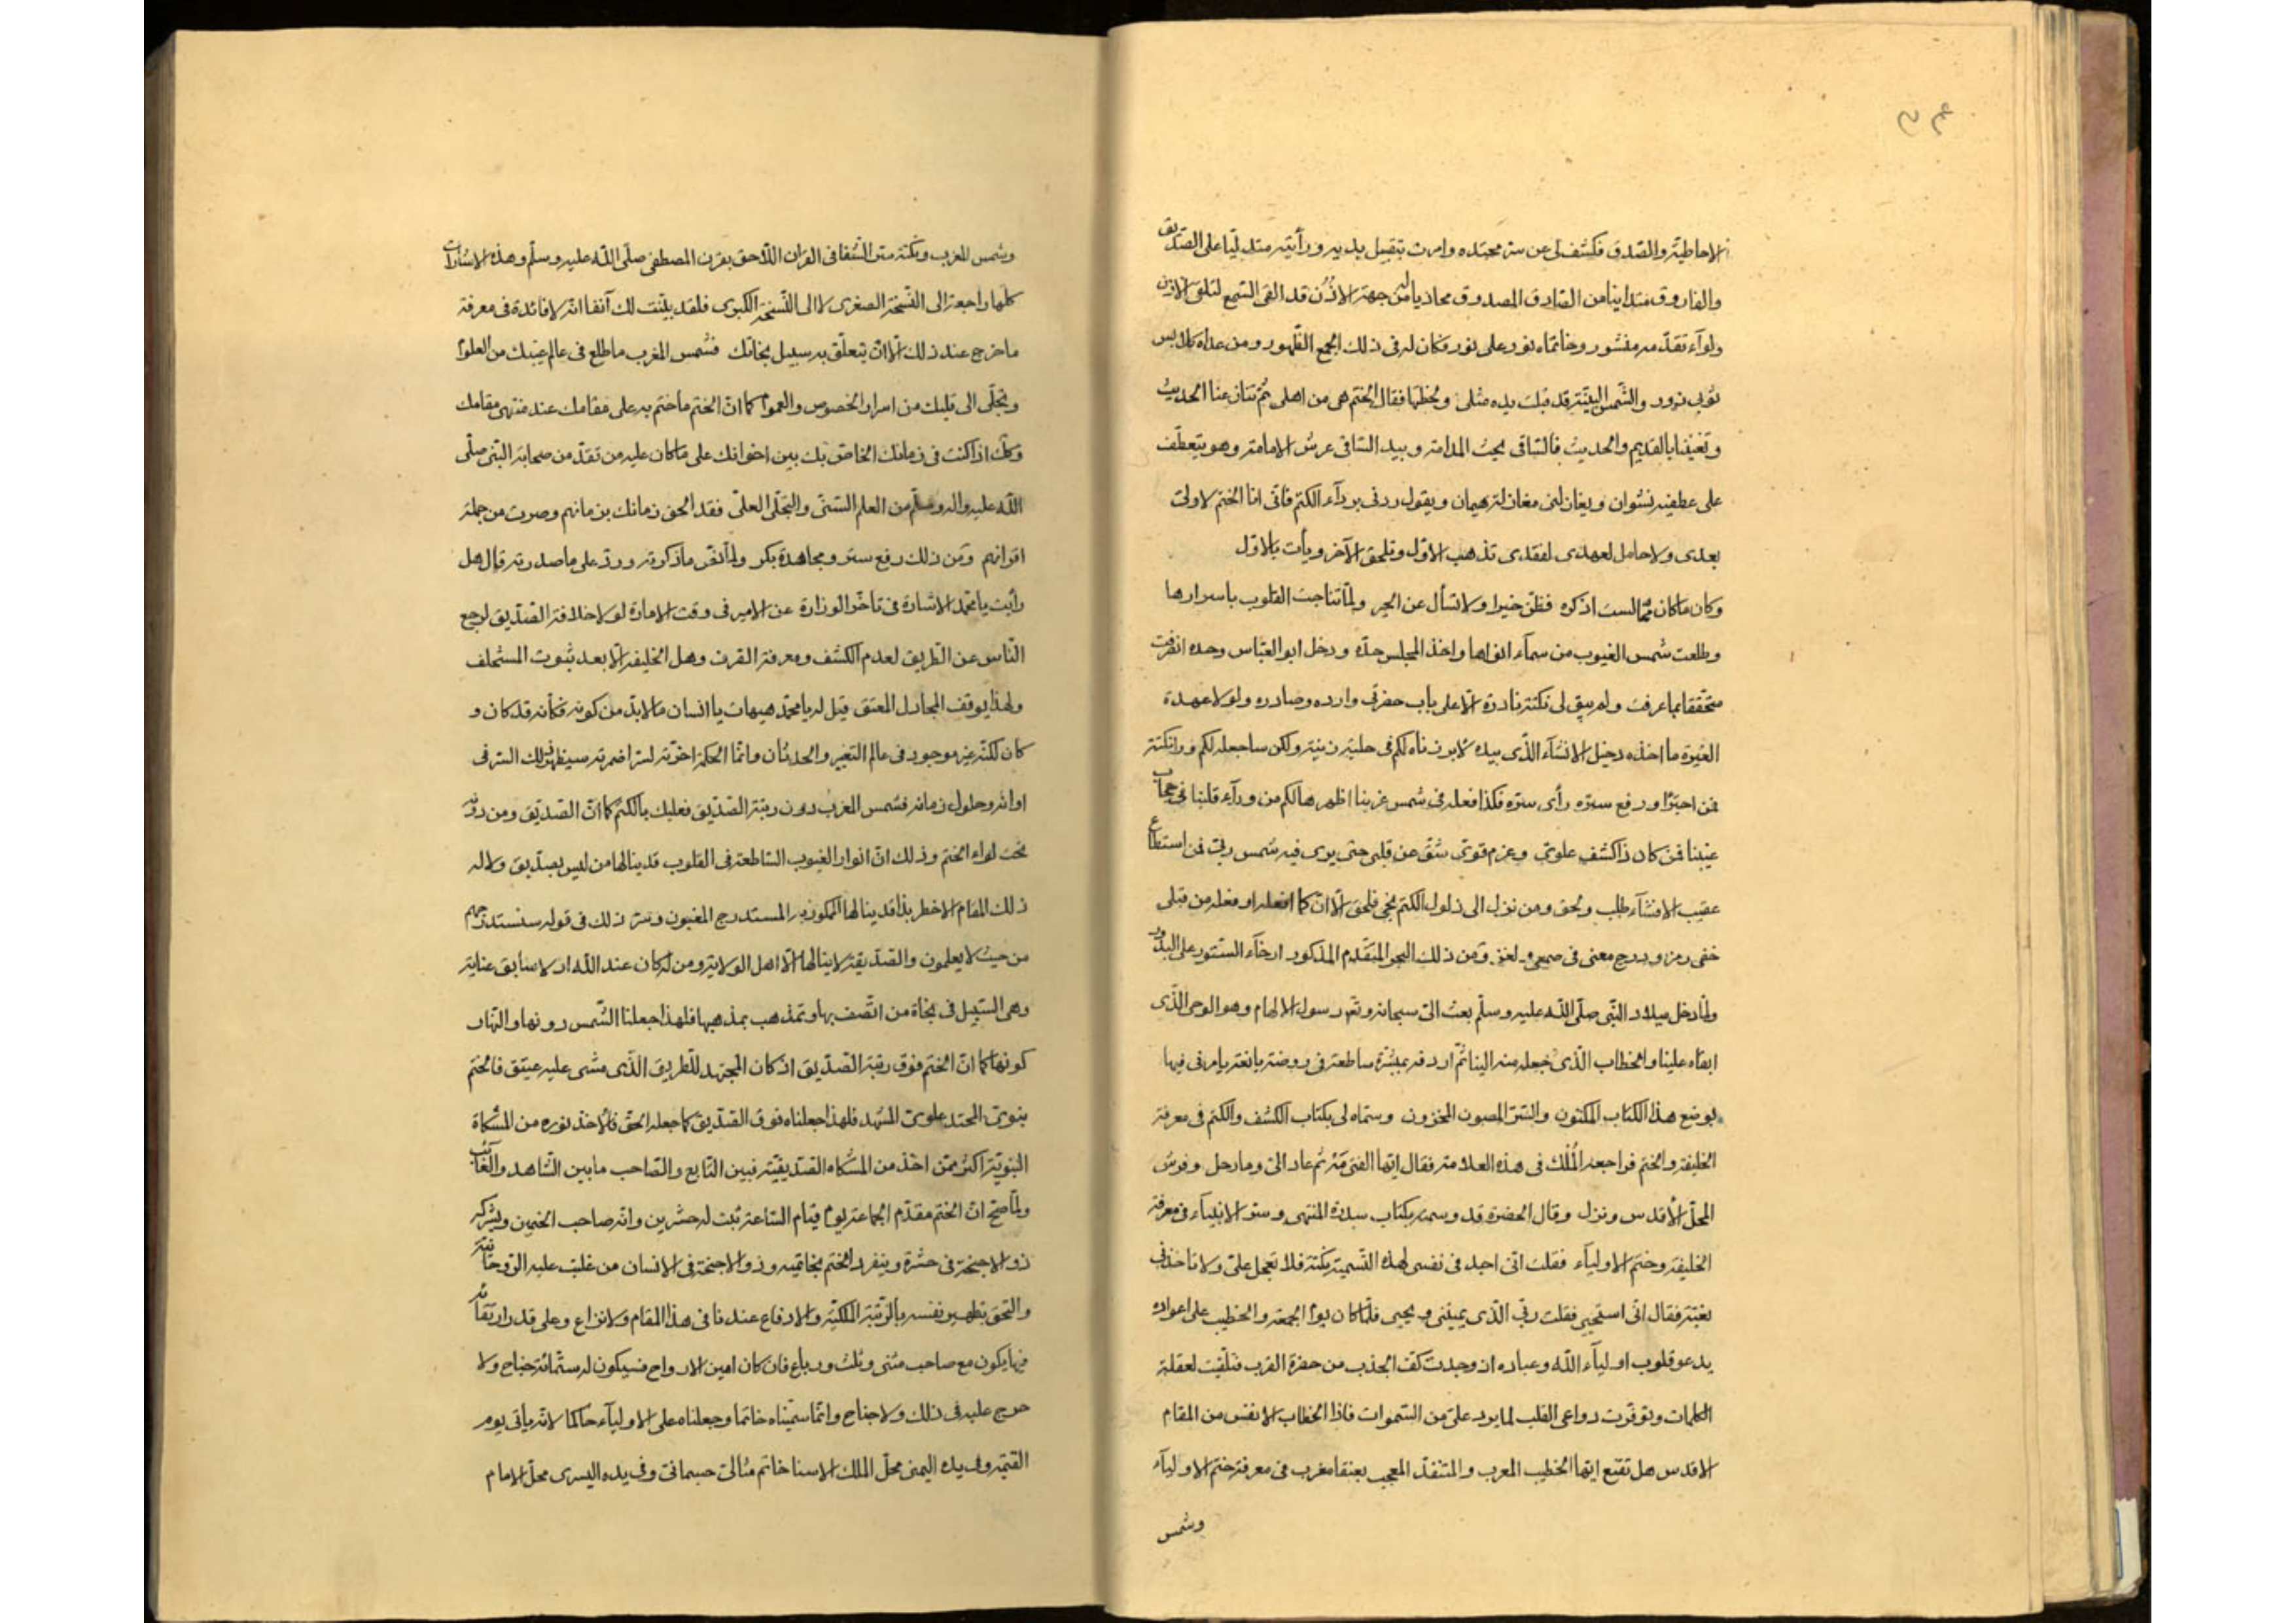 الاحاطية والصدق فكشف لى عن سر محتده وامرت بتقبيل يديه ورأيته متدليا على الصديق
والفاروق متدانيا من الصادق المصدوق محاذيا له من جهة الاذن قد القى السمع لتلقى الاذن
ولوآء تقدمه منشور وخاتماه نور على نور فكان له فى ذلك الجمع الظهور ومن عداه كلابس
ثوبى زور والشمس البيتية قد قبلت يده مثلى ولحظتها فقال الختم هى من اهلى ثم تنازعنا الحديث
وتغنينا بالقديم والحديث فالساقى يحث المدامة وبيد الساقى عرش الامامة وهو يتعطف
على عطفيه نشوان ويغازلنى مغازلة هيمان ويقول ردنى بردآء الكتم فانى انا الختم لا ولى
بعدى ولا حامل لعهدى لفقدى تذهب الاول وتلحق الآخر ويأت بالاول
وكان ما كان مما لست اذكره فظن خيرا ولا تسأل عن الخبر ولما تناجت القلوب باسرارها
وطلعت شمس الغيوب من سمآء انوارها واخذ المجلس حده ودخل ابو العباس وحده انصرفت
متحققا بما عرفت ولم يبق لى نكتة نادرة الا على باب حضرتى وارده وصادره ولولا عهدة
الغيرة ما اخذه دخيل الافشآء الذى بيده لابرزناه لكم فى حلية زينته ولكن ساجعله لكم ورا نكتة
فمن اجتزا ورفع ستره رأى سره فكذا فعله فى شمس غربنا اظهرها لكم من ورآء قلبنا فى حجاب
غيبنا فمن كان ذا كشف علوى وعزم قوى شق عن قلبى حتى يرى فيه شمس ربى فمن استطاع
عقيب الافشآء طلب ولحق ومن نزل الى ذلول الكتم نجى فلحق الا ان كما افعله او فعله من قبلى
خفى رمز ودرج معنى فى معمى ولغز ومن ذلك البحر المتقدم المذكور ارخآء الستور على البدور
ولما دخل ميلاد النبى صلى الله عليه وسلم بعث الى سبحانه وتعالى رسول الالهام وهو الوحى الذى
ابقاه علينا والخطاب الذى جعله منه الينا ثم اردفه بمبشرة ساطعة فى روضة يانعة يامرنى فيها
بوضع هذا الكتاب المكنون والسر المصون المخزون وسماه لى بكتاب الكشف والكتم فى معرفة
الخليفة والختم فراجعه الملك فى هذه العلامة فقال ايها الفتى مه ثم عاد الى وما رحل وفرش
المحل الاقدس ونزل وقال الحضرة قد وسمته بكتاب سدرة المنتهى وسر الانبيآء فى معرفة
الخليفة وختم الاوليآء فقلت انى اجد فى نفسى لهذه التسمية نكتة فلا تعجل على ولا تاخذنى
بغتة فقال انى استحيى فقلت ربى الذى يميتنى ويحيى فلما كان يوم الجمعة والخطيب على اعواده
يدعو قلوب اوليآء الله وعباده اذ وجدت كف الجذب من حضرة القرب فتلقيت لعقلة
الكلمات وتوفرت دواعى القلب لما يرد على من السموات فاذا الخطاب الانفس من المقام
الاقدس هل تقنع ايها الخطيب المعرب والمنتقد المعجب بعنقا مغرب فى معرفة ختم الاوليآء
وشمس
وشمس المغرب ونكتة سر الشفا فى القران اللاحق بقرن المصطفى صلى الله عليه وسلم وهذه الاشارات
كلها راجعة الى النسخة الصغرى لا الى النسخة الكبرى فلقد بينت لك آنفا انه لا فائدة فى معرفة
ما خرج عند ذلك الا ان يتعلق به سبيل نجاتك فشمس المغرب ما طلع فى عالم غيبك من العلوم
وتجلى الى قلبك من اسرار الخصوص والعموم كما ان الختم ما ختم به على مقامك عند منتهى مقامك
وكان اذا كنت فى زمانك الخاص بك بين اخوانك على ما كان عليه من تقدم من صحابة النبى صلى
الله عليه واله وسلم من العلم السنى والتجلى العلى فقد الحق زمانك بزمانهم وصرت من جملة
اقرانهم ومن ذلك رفع ستر ومجاهدة بكر ولما نقر ما ذكرته وورد على ما صدرته قال هل
رأيت يا محمد الاشارة فى تاخر الوزارة عن الامير فى وقت الامارة لولا خلافة الصديق لرجع
الناس عن الطريق لعدم الكشف ومعرفة القرن وهل الخليفة الا بعد ثبوت المستخلف
ولهذا يوقف المجادل المعنق قيل له يا محمد هيهات يا انسان ما لا بد من كونه فكأنه قد كان و
كان لكنه غير موجود فى عالم التغير والحدثان وانما الحكمة اخرته لسر اضمرته سيظهر لك السر فى
اوانه وحلول زمانه فشمس المغرب دون رتبة الصديق فعليك بالكتم كما ان الصديق ومن دونه
تحت لواء الختم وذلك ان انوار الغيوب الساطعة فى القلوب قد ينالها من ليس بصديق ولا له
ذلك المقام الاخطر بذا قد ينالها الممكور به المستدرج المغبون وسر ذلك فى قوله سنستدرجهم
من حيث لا يعلمون والصديقية لا ينالها الا اهل الولاية ومن له كان عند الله ازلا سابق عناية
وهى السبيل فى نجاة من اتصف بها وتمذهب بمذهبها فلهذا جعلنا الشمس دونها والتهاب
كونها كما ان الختم فوق رتبة الصديق اذ كان المجتهد للطريق الذى مشى عليه عتيق فالختم
نبوى المحتد علوى المشهد فلهذا جعلناه فوق الصديق كما جعله الحق فالاخذ نوره من المشكاة
النبوية اكبر ممن اخذ من المشكاه الصديقية فبين التابع والصاحب ما بين الشاهد والغائب
ولما صح ان الختم مقدم الجماعة يوم قيام الساعة ثبت له حشرين وانه صاحب الختمين ويشركه
ذو الاجنحة فى حشرة وينفرد الختم بخاتميه وذو الاجنحة فى الانسان من غلبت عليه الروحانية
والتحق بتطهير نفسه بالرتبة الملكية والارفاع عندنا فى هذا المقام ولا نزاع وعلى قدر ارتقائه
فيها يكون مع صاحب مثنى وثلث ورباع فان كان امين الارواح فسيكون له ستمائة جناح ولا
حرج عليه فى ذلك ولا جناح وانما سميناه خاتما وجعلناه على الاوليآء حاكما لانه يأتى يوم
القيمة وفى يده اليمنى محل الملك الاسنا خاتم مثالى جسمانى وفى يده اليسرى محل الامام